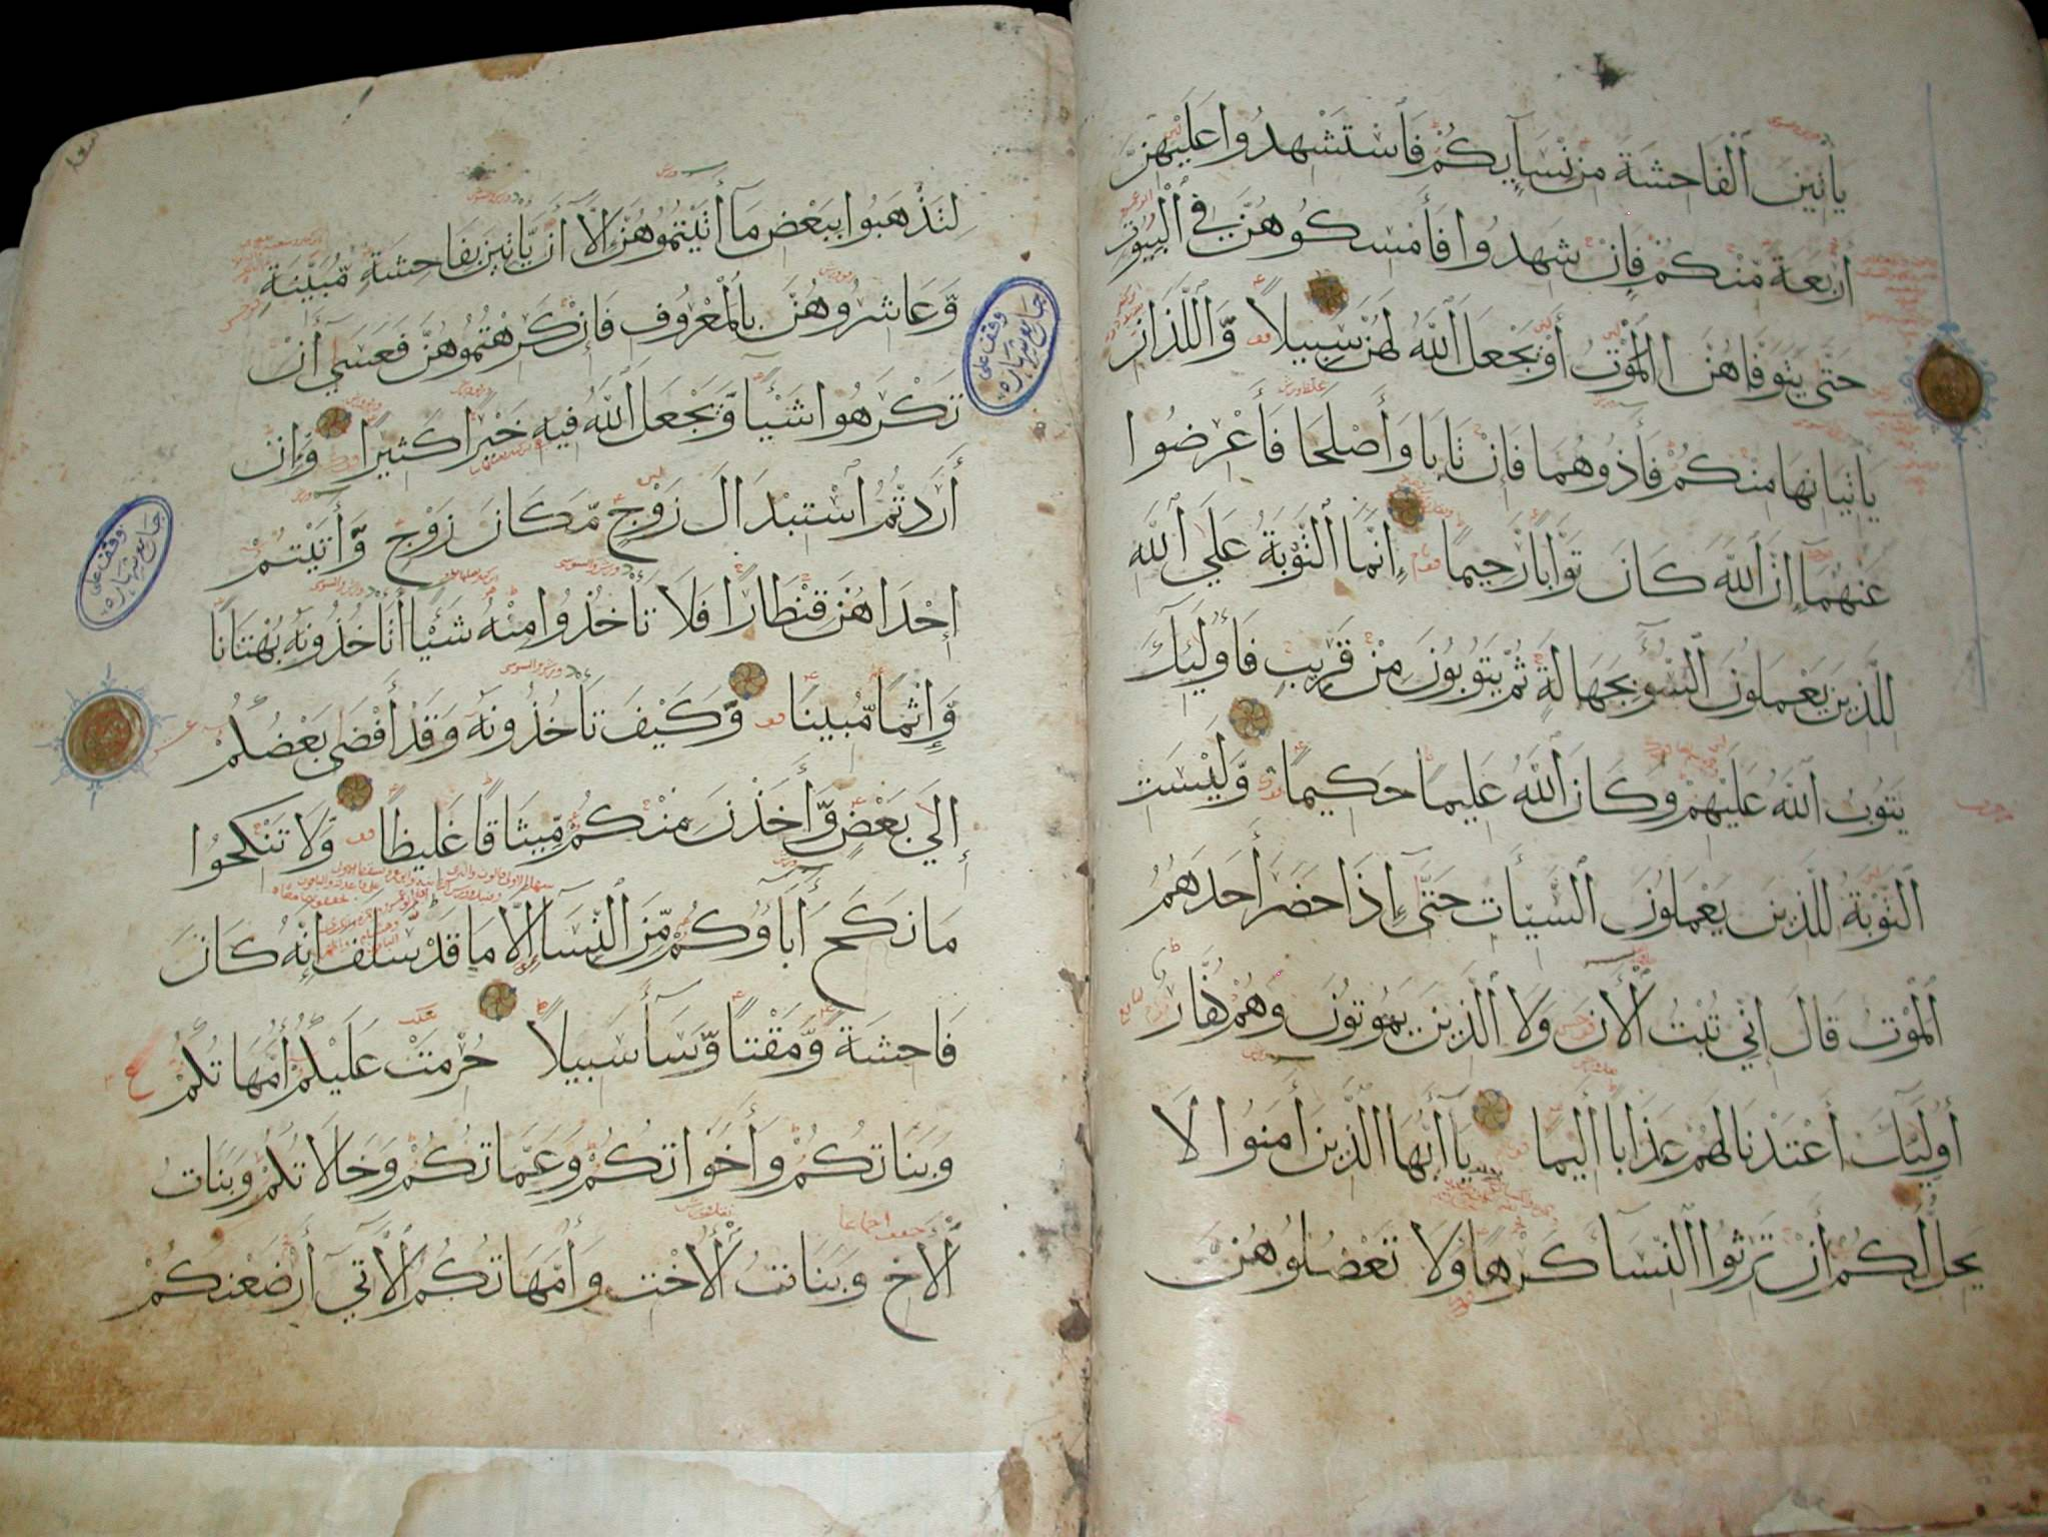 يَأْتِينَ ٱلْفَاحِشَةَ مِنْ نِسَآئِكُمْ فَٱسْتَشْهِدُوا عَلَيْهِنَّ
أَرْبَعَةً مِّنْكُمْ فَإِنْ شَهِدُوا فَأَمْسِكُوهُنَّ فِي ٱلْبُيُوتِ
حَتَّى يَتَوَفَّاهُنَّ ٱلْمَوْتُ أَوْ يَجْعَلَ ٱللَّهُ لَهُنَّ سَبِيلًا وَّاللَّذَانِ
يَأْتِيَانِهَا مِنْكُمْ فَأَذُوهُمَا فَإِنْ تَابَا وَأَصْلَحَا فَأَعْرِضُوا
عَنْهُمَآ إِنَّ ٱللَّهَ كَانَ تَوَّابًا رَّحِيمًا إِنَّمَا ٱلتَّوْبَةُ عَلَى ٱللَّهِ
لِلَّذِينَ يَعْمَلُونَ ٱلسُّوٓءَ بِجَهَالَةٍ ثُمَّ يَتُوبُونَ مِنْ قَرِيبٍ فَأُولَٰٓئِكَ
يَتُوبُ ٱللَّهُ عَلَيْهِمْ وَكَانَ ٱللَّهُ عَلِيمًا حَكِيمًا وَّلَيْسَتِ
ٱلتَّوْبَةُ لِلَّذِينَ يَعْمَلُونَ ٱلسَّيِّأَتِ حَتَّىٓ إِذَا حَضَرَ أَحَدَهُمُ
ٱلْمَوْتُ قَالَ إِنِّي تُبْتُ ٱلْأَنَ وَلَا ٱلَّذِينَ يَمُوتُونَ وَهُمْ كُفَّارٌ
أُولَٰٓئِكَ أَعْتَدْنَا لَهُمْ عَذَابًا أَلِيمًا يَآ أَيُّهَا ٱلَّذِينَ أَمَنُوا لَا
يَحِلُّ لَكُمْ أَنْ تَرِثُوا ٱلنِّسَآءَ كَرْهًا وَلَا تَعْضُلُوهُنَّ
لِتَذْهَبُوا بِبَعْضِ مَآ أَتَيْتُمُوهُنَّ إِلَّآ أَنْ يَّأْتِينَ بِفَاحِشَةٍ مُّبَيِّنَةٍ
وَّعَاشِرُوهُنَّ بِٱلْمَعْرُوفِ فَإِنْ كَرِهْتُمُوهُنَّ فَعَسَىٓ أَنْ
تَكْرَهُوا شَيْئًا وَّيَجْعَلَ ٱللَّهُ فِيهِ خَيْرًا كَثِيرًا وَّإِنْ
أَرَدتُّمُ ٱسْتِبْدَالَ زَوْجٍ مَّكَانَ زَوْجٍ وَّأَتَيْتُمْ
إِحْدَاهُنَّ قِنْطَارًا فَلَا تَأْخُذُوا مِنْهُ شَيْئًا أَتَأْخُذُونَهُ بُهْتَانًا
وَّإِثْمًا مُّبِينًا وَّكَيْفَ تَأْخُذُونَهُ وَقَدْ أَفْضَى بَعْضُكُمْ
إِلَى بَعْضٍ وَّأَخَذْنَ مِنْكُمْ مِّيثَاقًا غَلِيظًا وَّلَا تَنْكِحُوا
مَا نَكَحَ أَبَآؤُكُمْ مِّنَ ٱلنِّسَآءِ إِلَّا مَا قَدْ سَلَفَ إِنَّهُ كَانَ
فَاحِشَةً وَّمَقْتًا وَّسَآءَ سَبِيلًا حُرِّمَتْ عَلَيْكُمْ أُمَّهَاتُكُمْ
وَبَنَاتُكُمْ وَأَخَوَاتُكُمْ وَعَمَّاتُكُمْ وَخَالَاتُكُمْ وَبَنَاتُ
ٱلْأَخِ وَبَنَاتُ ٱلْأُخْتِ وَأُمَّهَاتُكُمُ ٱلَّاتِيٓ أَرْضَعْنَكُمْ